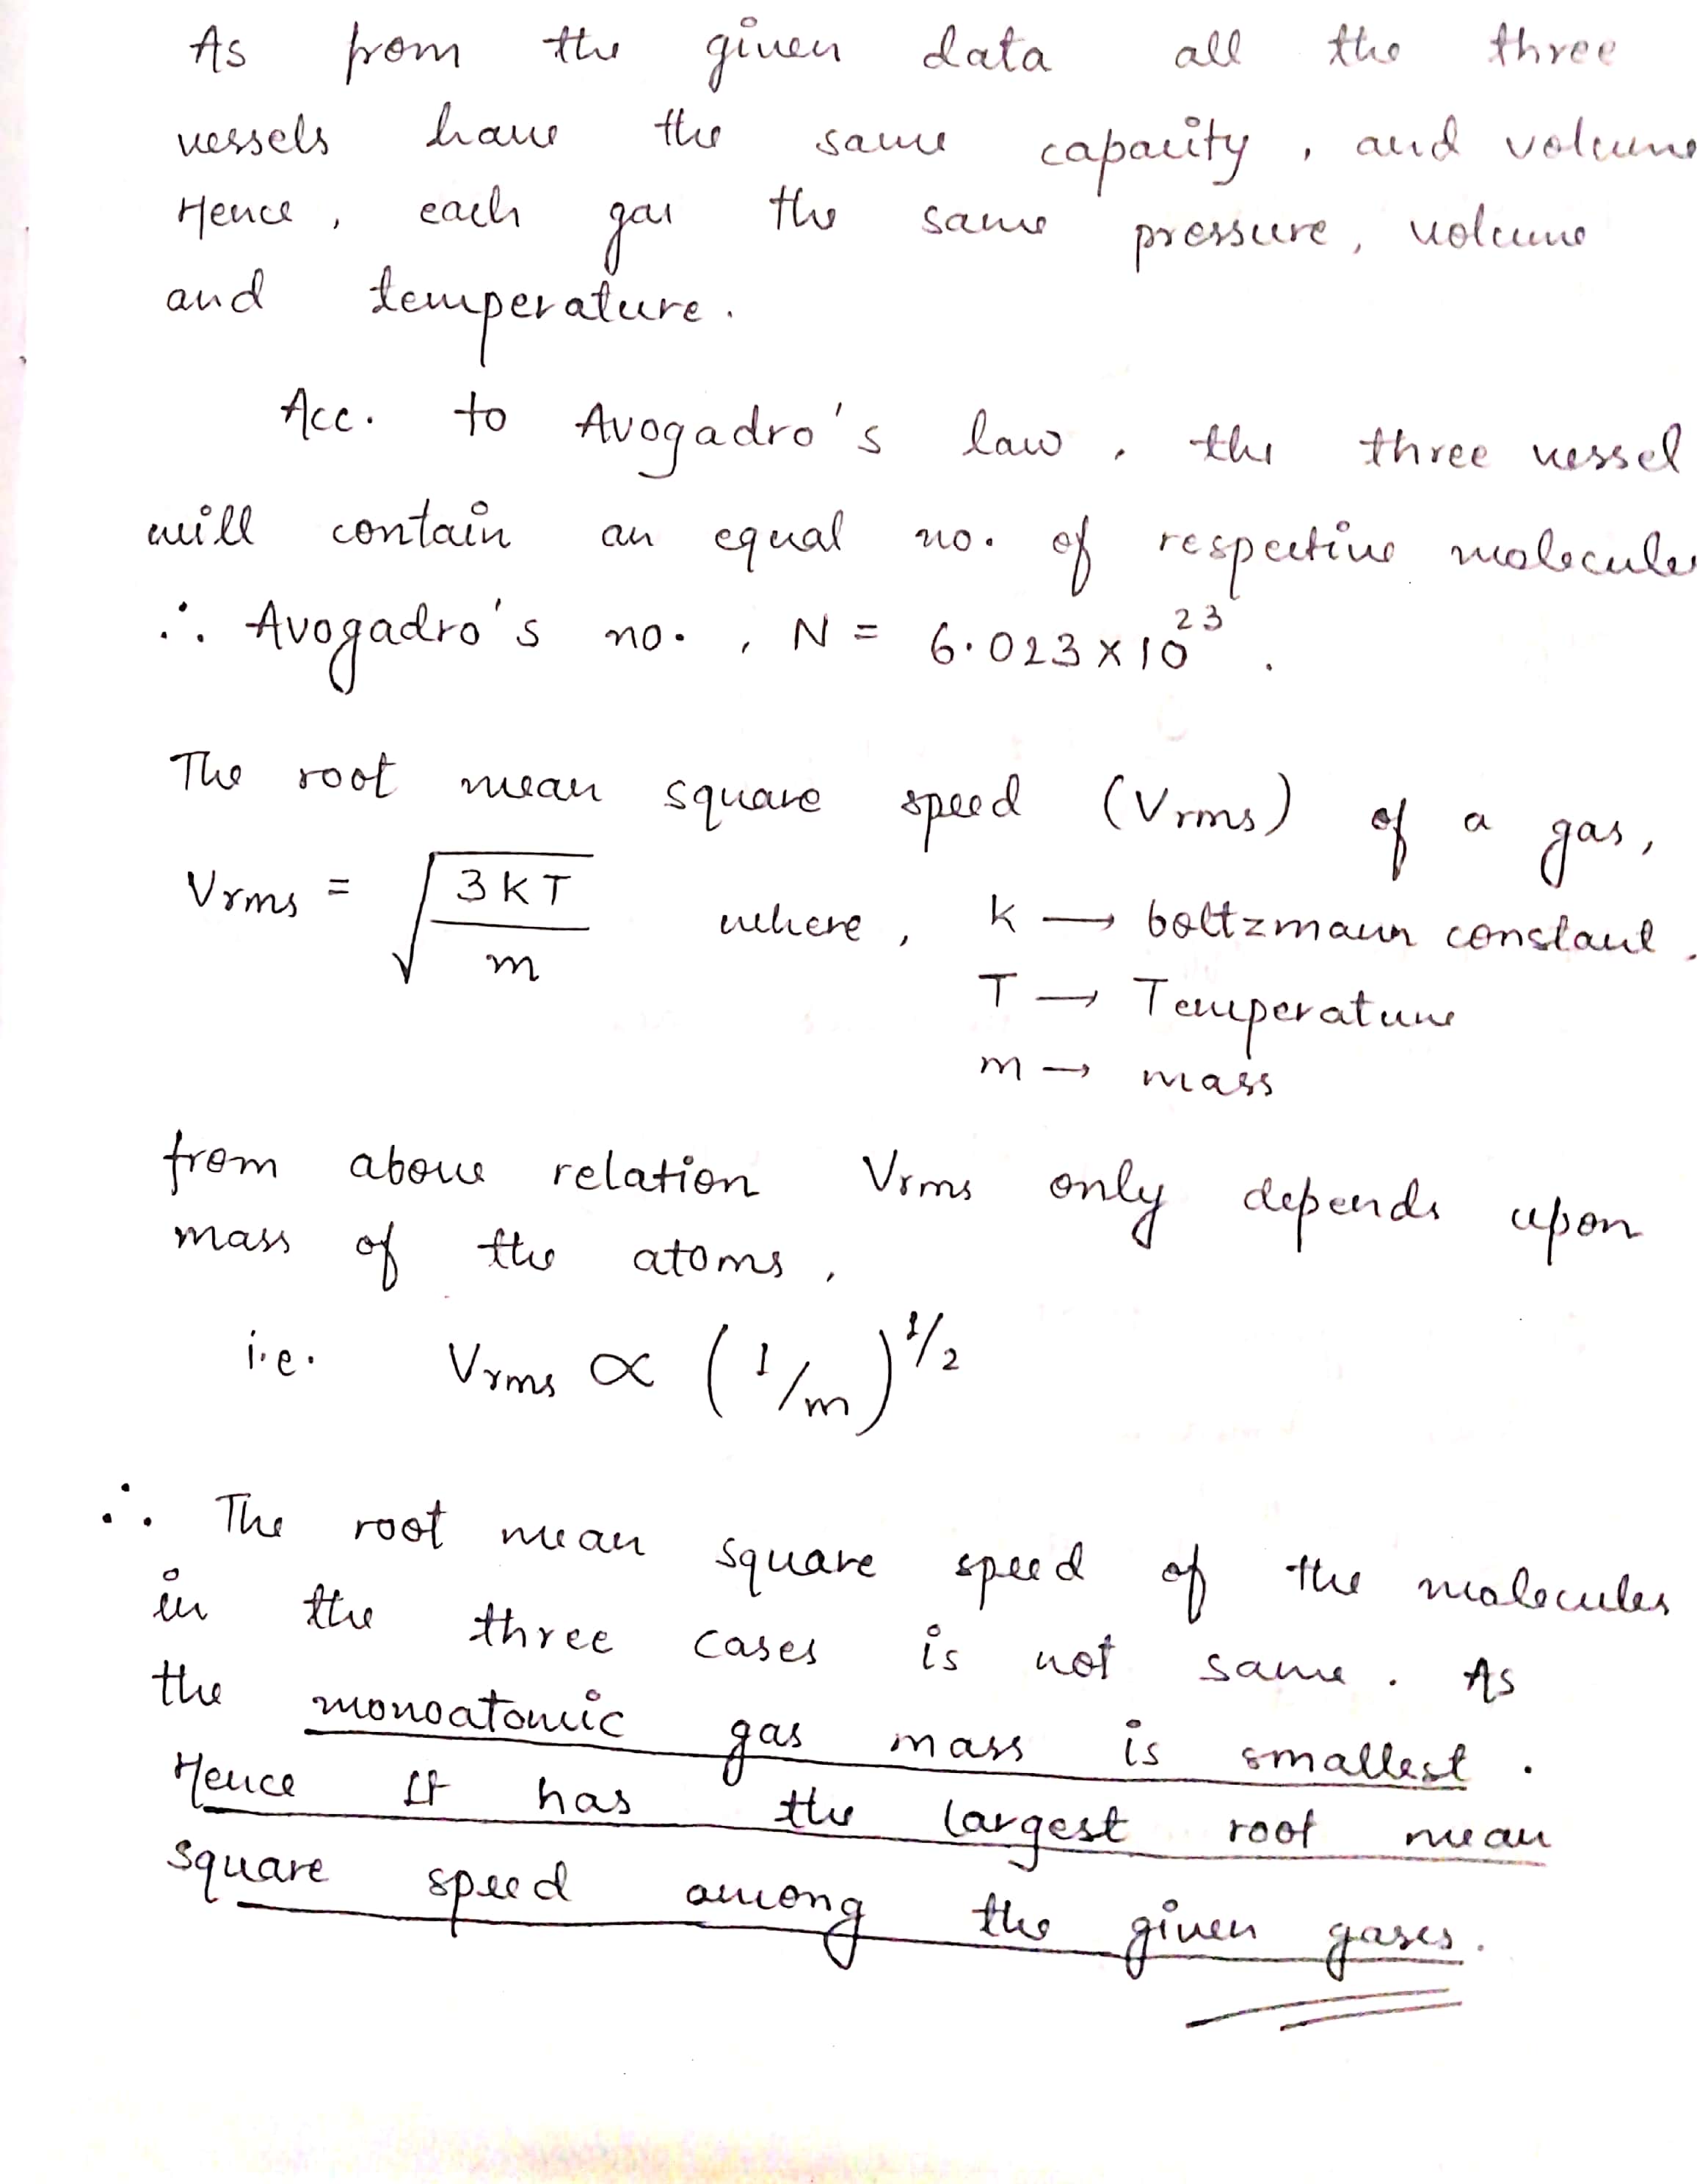 As from the given data all the three
vessels have the same capacity, and volume
Hence, each gas the same pressure, volume
and temperature.
Acc. to Avogadro's law, the three vessel
will contain an equal no. of respective molecules
∴ Avogadro's no., N = 6.023 × 10²³.
The root mean square speed (Vrms) of a gas,
Vrms = √(3KT/m) where, K → boltzmann constant.
T → Temperature
m → mass
from above relation Vrms only depends upon
mass of the atoms,
i.e. Vrms ∝ (1/m)^1/2
∴ The root mean square speed of the molecules
in the three cases is not same. As
the monoatomic gas mass is smallest.
Hence It has the largest root mean
square speed among the given gases.